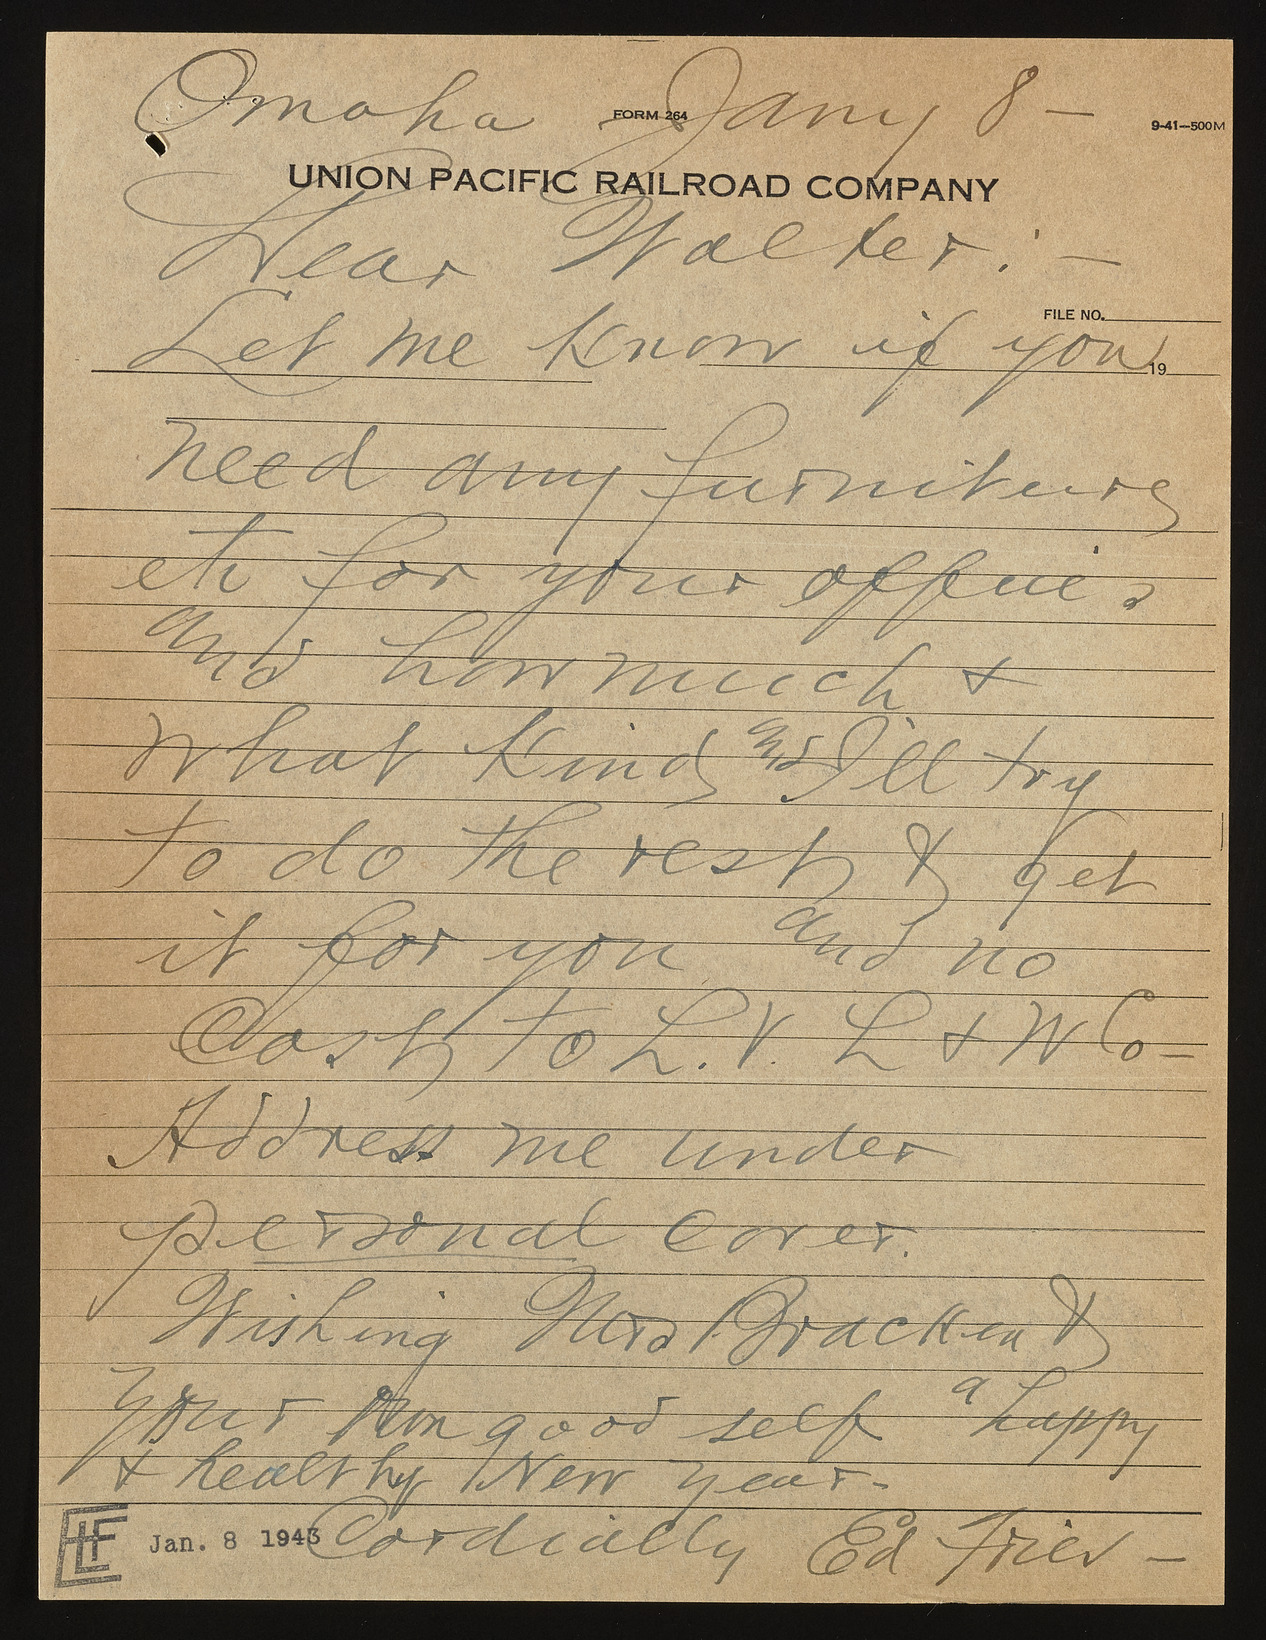 Omaha Jany 8 —
FORM 264
9-41—500M
UNION PACIFIC RAILROAD COMPANY
Dear Walter: —
FILE NO.
Let me know if you
19
need any furniture
etc for your offices
and how much &
what kind, and I'll try
to do the rest, & get
it for you and no
Cash to L.V. L & W Co —
Address me under
personal cover.
Wishing Mrs Bracken &
your own good self a happy
& healthy New Year -
Jan. 8 1943 Cordially Ed